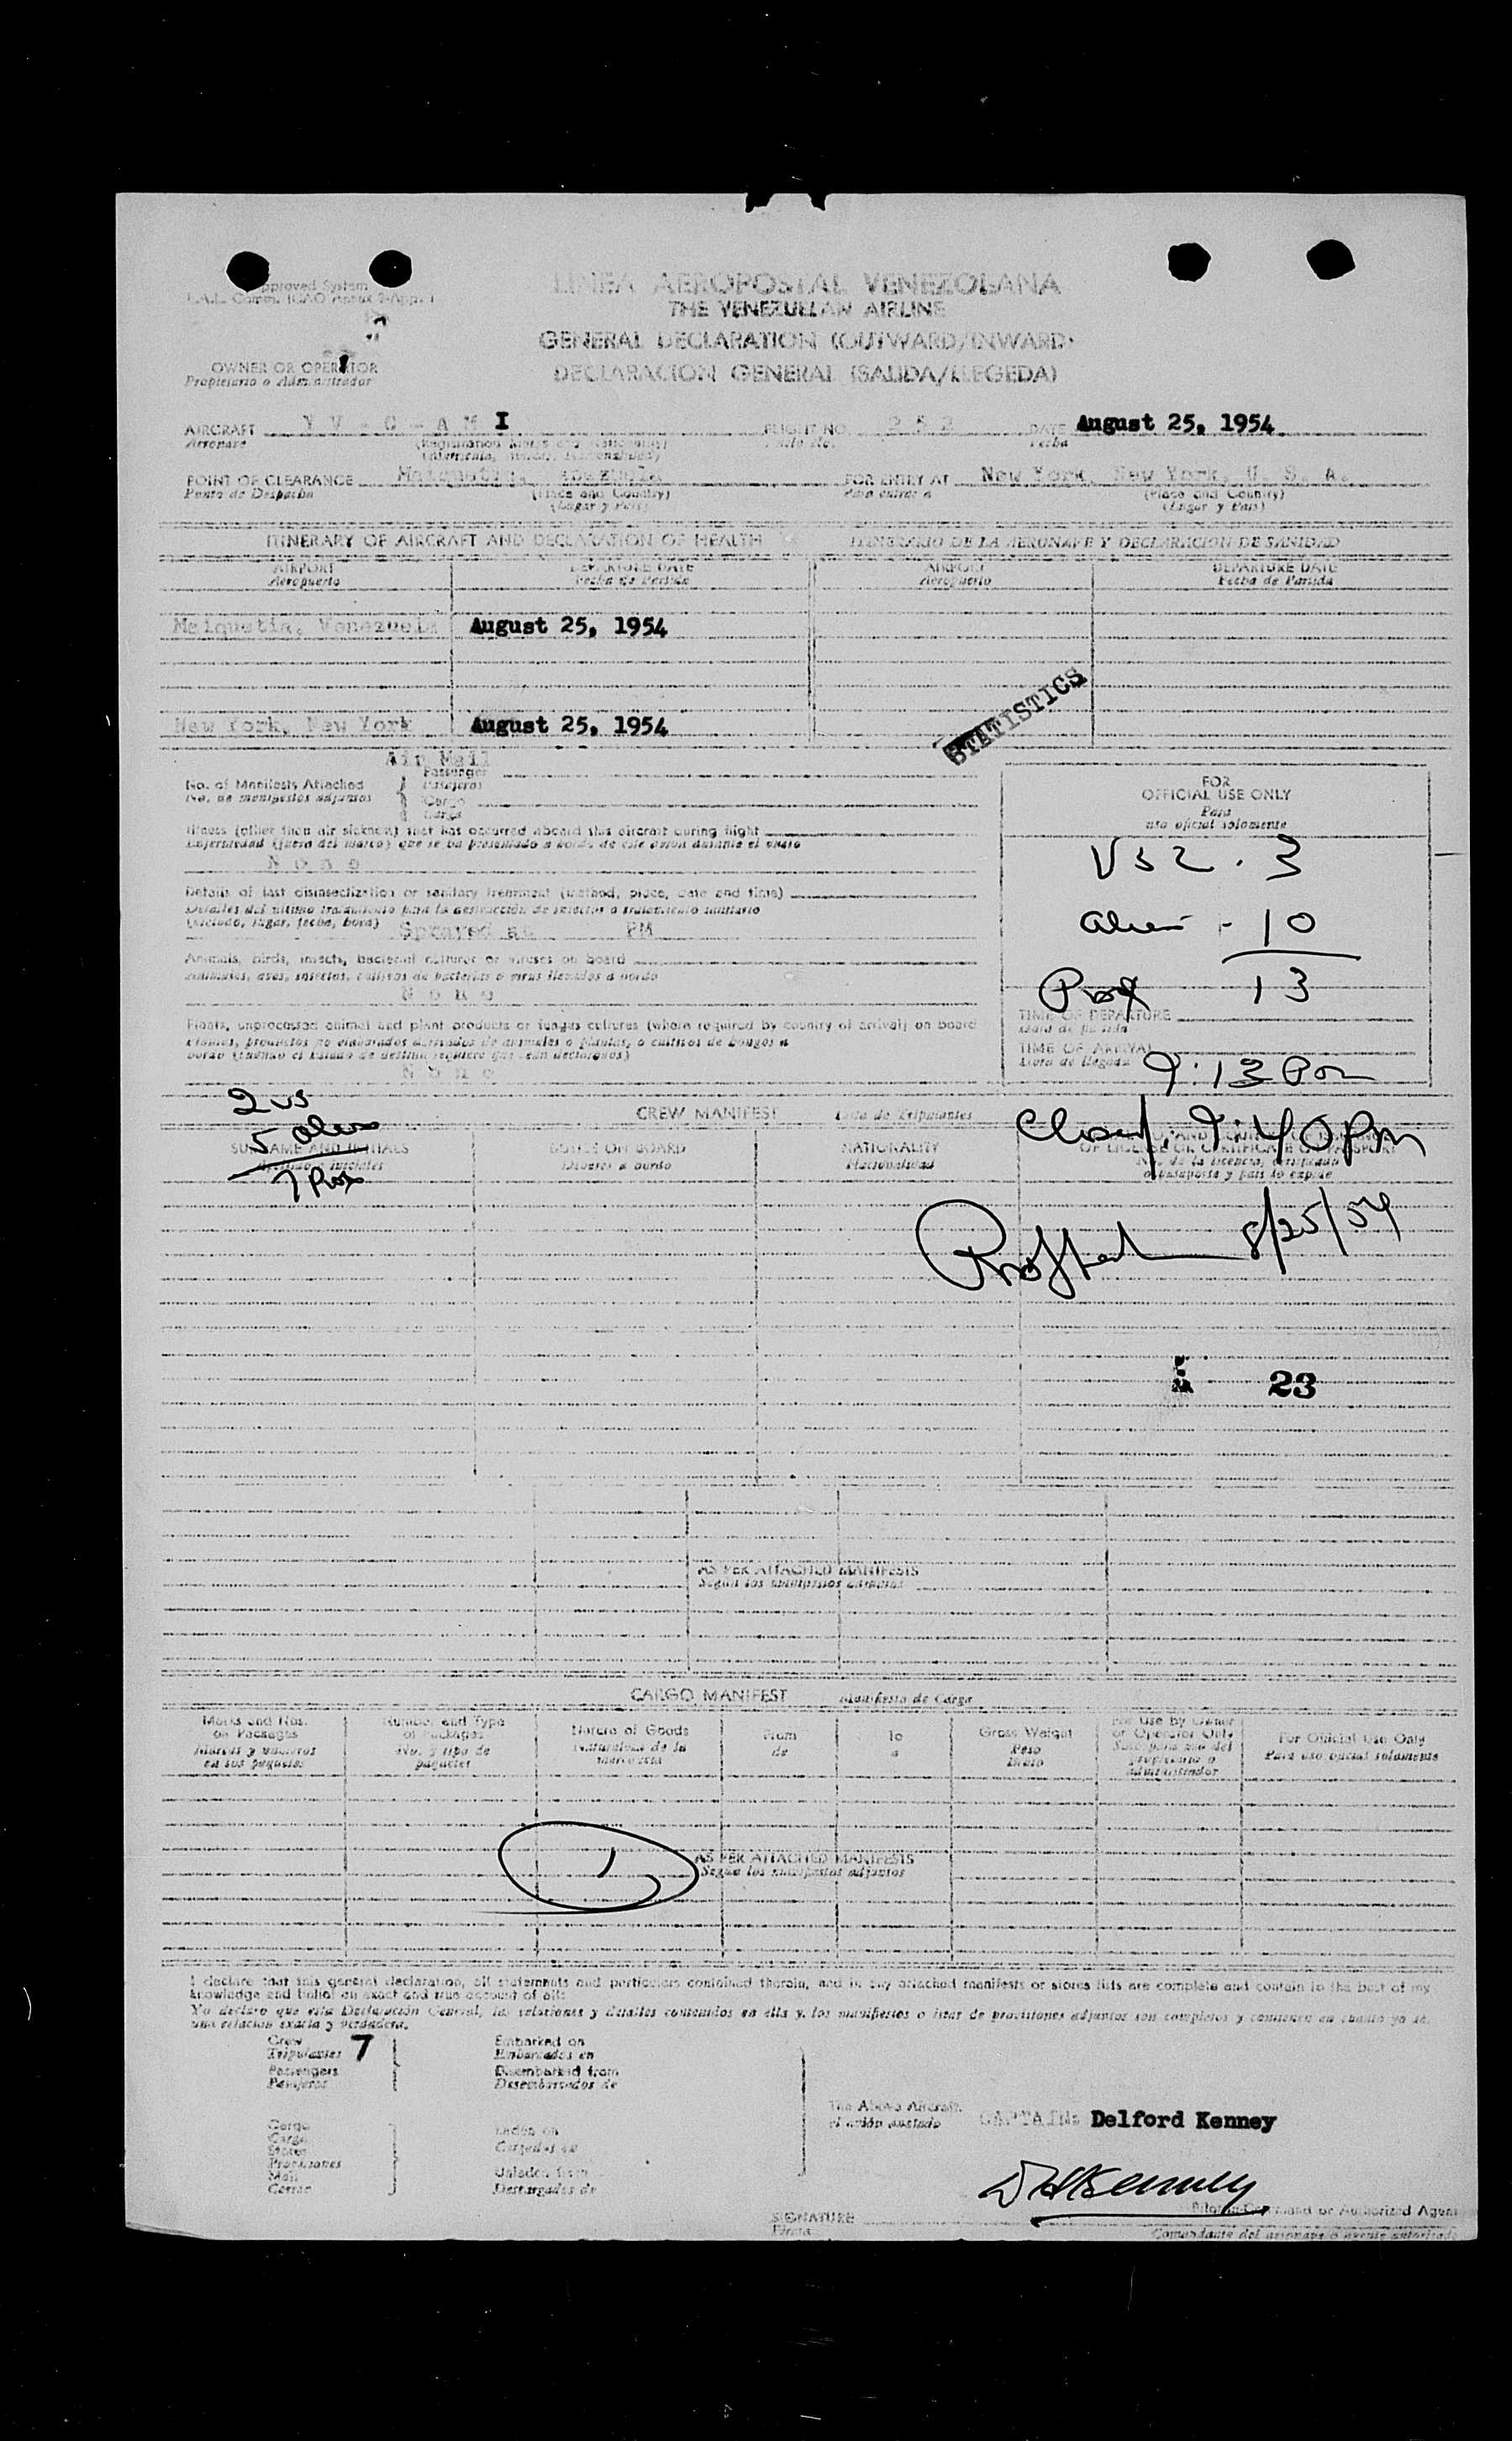 Approved System
LINEA AEROPOSTAL VENEZOLANA
THE VENEZUELAN AIRLINE
GENERAL DECLARATION (OUTWARD/INWARD)
DECLARACION GENERAL (SALIDA/LLEGEDA)
OWNER OR OPERATOR
Propietario o Administrador
AIRCRAFT Y V - C - A M I FLIGHT NO. 2 5 2 DATE August 25, 1954
Aeronave Vuelo No. Fecha
POINT OF CLEARANCE Maiquetia, Venezuela FOR ENTRY AT New York, New York, U. S. A.
Punto de Despacho (Place and Country) Para entrar a (Place and Country)
(Lugar y País) (Lugar y País)
ITINERARY OF AIRCRAFT AND DECLARATION OF HEALTH ITINERARIO DE LA AERONAVE Y DECLARACION DE SANIDAD
AIRPORT DEPARTURE DATE AIRPORT DEPARTURE DATE
Aeropuerto Fecha de Partida Aeropuerto Fecha de Partida
Maiquetia, Venezuela August 25, 1954
STATISTICS
New York, New York August 25, 1954
Air Mail
No. of Manifests Attached Passenger
No. de manifiestos adjuntos Pasajeros
Cargo
Carga
FOR
OFFICIAL USE ONLY
Para
uso oficial solamente
Illness (other than air sickness) that has occurred aboard this aircraft during flight
Enfermedad (fuera del mareo) que se ha presentado a bordo de este avion durante el vuelo
N o n e
Details of last disinsectization or sanitary treatment (method, place, date and time)
Detalles del ultimo tratamiento para la destrucción de insectos o tratamiento sanitario
(método, lugar, fecha, hora) Sprayed at PM
Animals, birds, insects, bacterial cultures or viruses on board
Animales, aves, insectos, cultivos de bacterias o virus llevados a bordo
N o n e
Plants, unprocessed animal and plant products or fungus cultures (where required by country of arrival) on board
N o n e
3
10
13
TIME OF DEPARTURE
Hora de partida
TIME OF ARRIVAL
Hora de llegada 9:13 Pm
Closed, 9:40 Pm
8/25/54
2 us
CREW MANIFEST Lista de Tripulantes
SURNAME AND INITIALS DUTIES ON BOARD NATIONALITY
Apellidos e iniciales Deberes a bordo Nacionalidad
23
AS PER ATTACHED MANIFESTS
Según los manifiestos adjuntos
CARGO MANIFEST Manifiesto de Carga
Marks and Nos. on Packages
Marcas y números en los paquetes
Number and Type of Packages
No. y tipo de paquetes
Nature of Goods
Naturaleza de la mercancia
From
de
To
a
Gross Weight
Peso Bruto
For Use by Owner or Operator Only
Solo para uso del propietario o administrador
For Official Use Only
Para uso oficial solamente
AS PER ATTACHED MANIFESTS
Según los manifiestos adjuntos
I declare that this general declaration, all statements and particulars contained therein, and in any attached manifests or stores lists are complete and contain to the best of my
knowledge and belief an exact and true account of all:
Yo declaro que esta Declaración General, las relaciones y detalles contenidos en ella y los manifiestos o listas de provisiones adjuntos son completos y contienen en cuanto yo sé,
una relación exacta y verdadera.
Crew 7 Embarked on
Tripulantes Embarcados en
Passengers Disembarked from
Pasajeros Desembarcados de
The Above Aircraft.
el avión anotado
CAPTAIN: Delford Kenney
Cargo Laden on
Carga Cargados en
Stores
Provisiones
Mail Unladen from
Correo Descargados de
DHKenney
SIGNATURE Pilot-in-Command or Authorized Agent
Firma Comandante del aeronave o agente autorizado